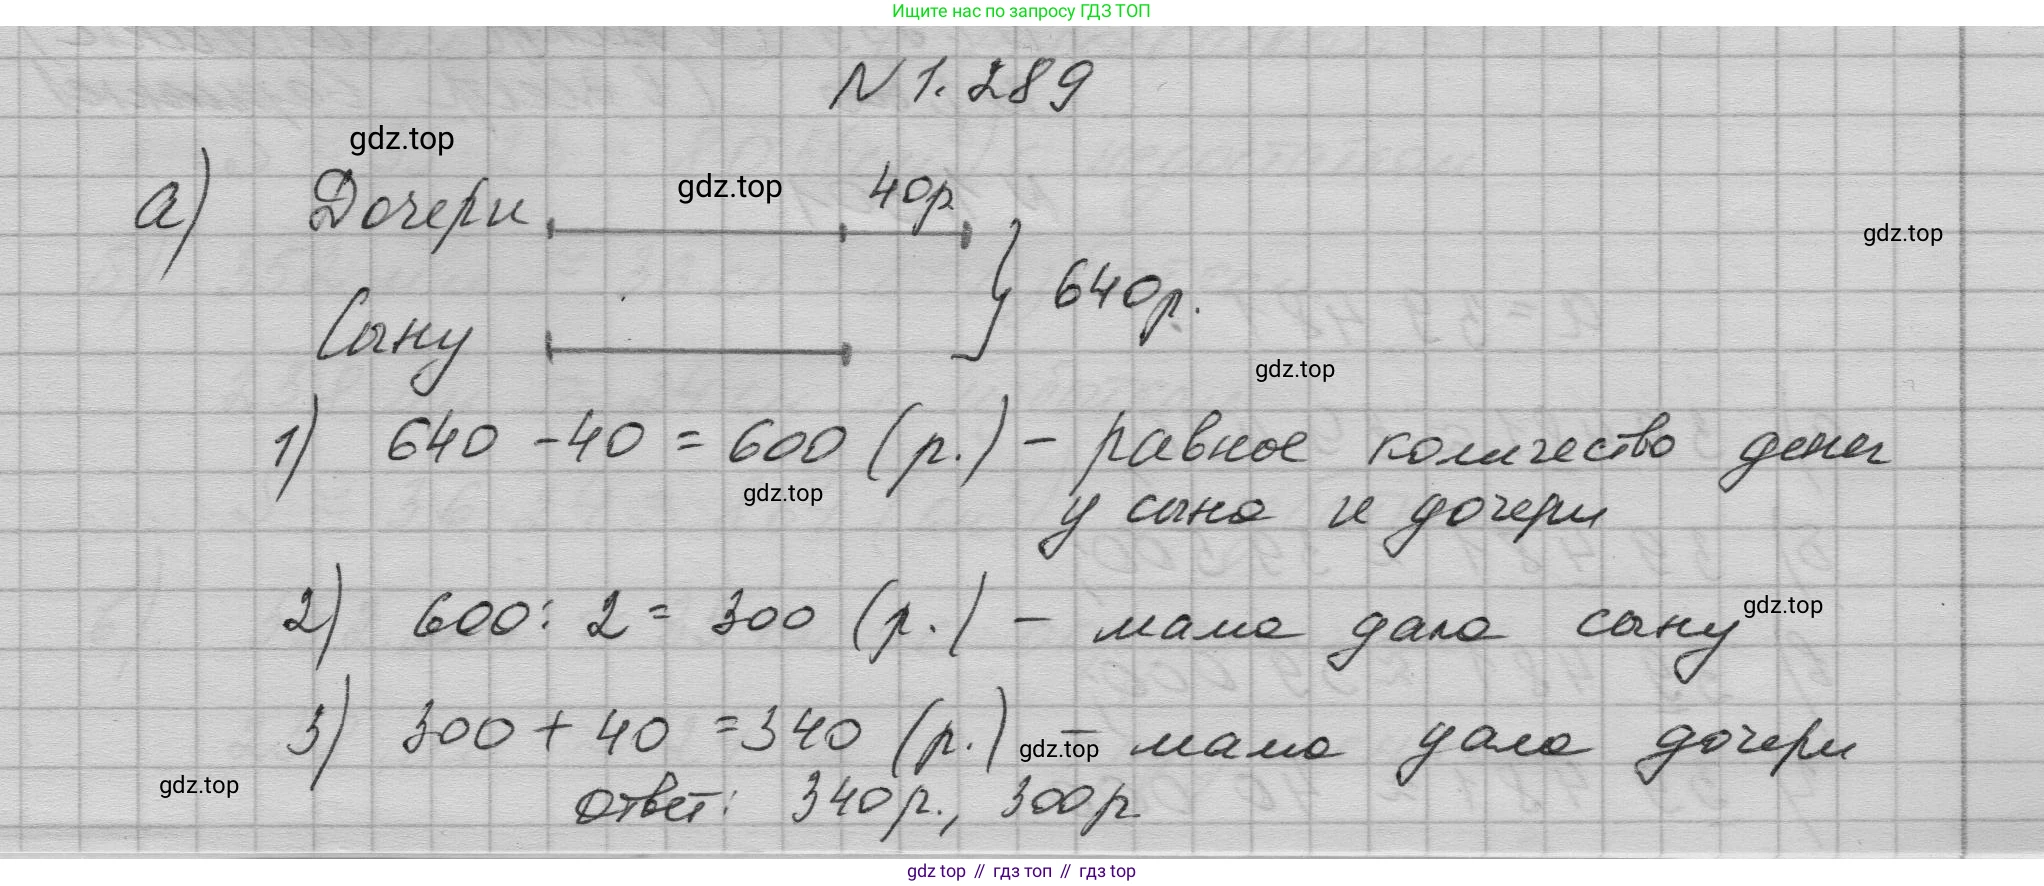 Ищите нас по запросу ГДЗ ТОП
N 1.289
gdz.top
а) Дочери gdz.top 40р
gdz.top
Сыну 640р.
gdz.top
1) 640 - 40 = 600 (р.) - равное количество денег
gdz.top
у сына и дочери
2) 600 : 2 = 300 (р.) - мама дала сыну gdz.top
3) 300 + 40 = 340 (р.) - мама дала дочери
gdz.top
gdz.top
Ответ: 340р., 300р
gdz top // гдз топ // гдз top